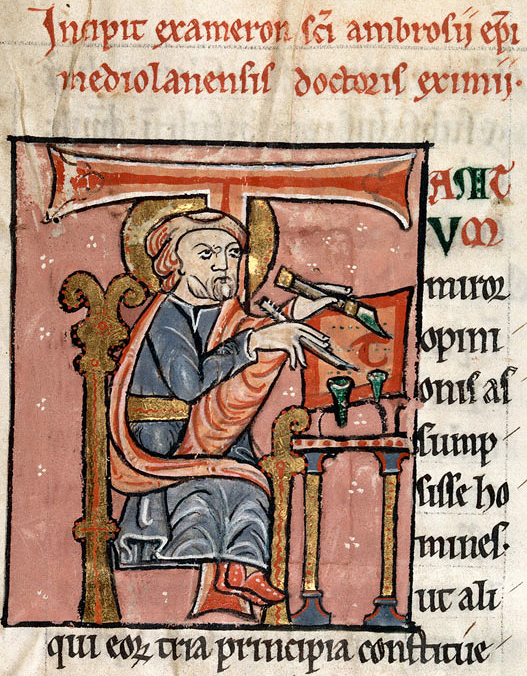 Incipit exameron sc̄i ambrosii ep̄i
mediolanensis doctoris eximii·
TANT
VM
miror
opini
onis as
sump
sisse ho
mines·
ut ali
qui eoꝝ tria principia constitue